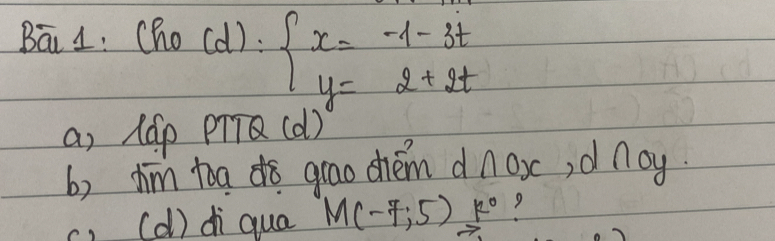 Bài 1: Cho (d): { x = -1 - 3t
y = 2 + 2t
a, lập PTTQ (d)
b, tìm toạ độ giao điểm d ∩ ox, d ∩ oy.
c, (d) đi qua M(-7;5) k°?